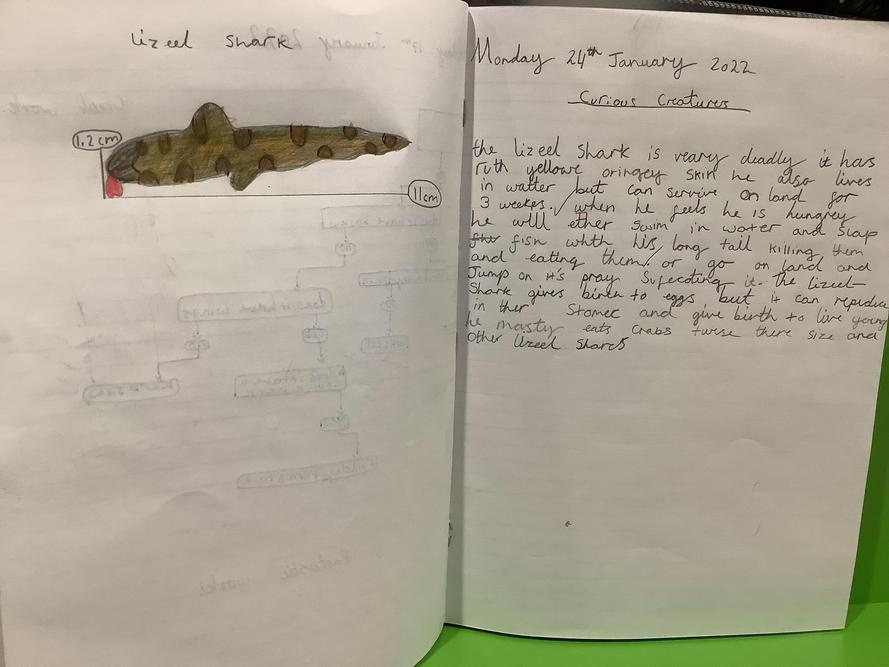 lizeel shark
1.2 cm
11cm
Monday 24th January 2022
Curious Creatures
the lizeel shark is veary deadly it has
ruth yellowe oringey skin he also lives
in watter but can servive on land for
3 weekes. when he feels he is hungrey
he will ether swim in water and slap
fish whth his long tail killing them
and eating them or go on land and
Jump on it's pray sufecoting it. the lizeel
Shark gives birth to eggs but it can repuduce
in ther stomec and give birth to live young
he mastly eats crabs twise there size and
other lizeel sharcs